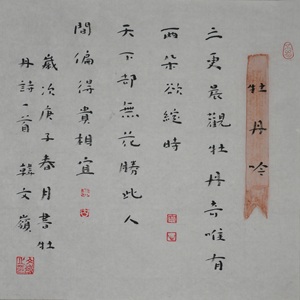 牡丹吟
三更晨觀牡丹奇唯有
兩朵欲綻時
天下都無花勝此人
間偏得貴相宜
歲次庚子春月書牡
丹詩一首 韓文嶺